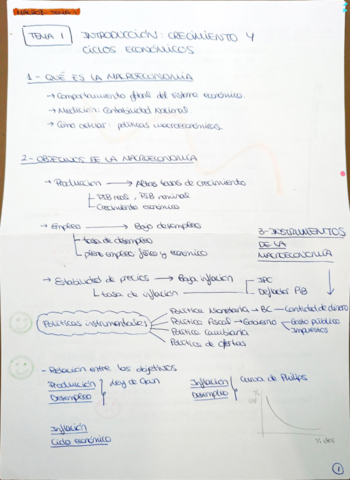 MACRO: TEMA 1
TEMA 1 INTRODUCCIÓN: CRECIMIENTO Y
CICLOS ECONÓMICOS
1 - QUÉ ES LA MACROECONOMÍA
→ Comportamiento global del sistema económico
→ Medición: Contabilidad Nacional
→ Cómo actuar: políticas macroeconómicas
2 - OBJETIVOS DE LA MACROECONOMÍA
→ Producción → Altas tasas de crecimiento
PIB real, PIB nominal
Crecimiento económico
→ Empleo → Bajo desempleo
tasa de desempleo
pleno empleo físico y económico
3 - INSTRUMENTOS
DE LA
MACROECONOMÍA
→ Estabilidad de precios → Baja inflación
IPC
tasa de inflación
Deflactor PIB
Políticas instrumentales
Política Monetaria → BC → Cantidad de dinero
Política Fiscal → Gobierno
Gasto público
Impuestos
Política Cambiaria
Política de ofertas
- Relación entre los objetivos
Producción
Desempleo
Ley de Okun
Inflación
Desempleo
Curva de Philips
Inflación
Ciclo económico
1